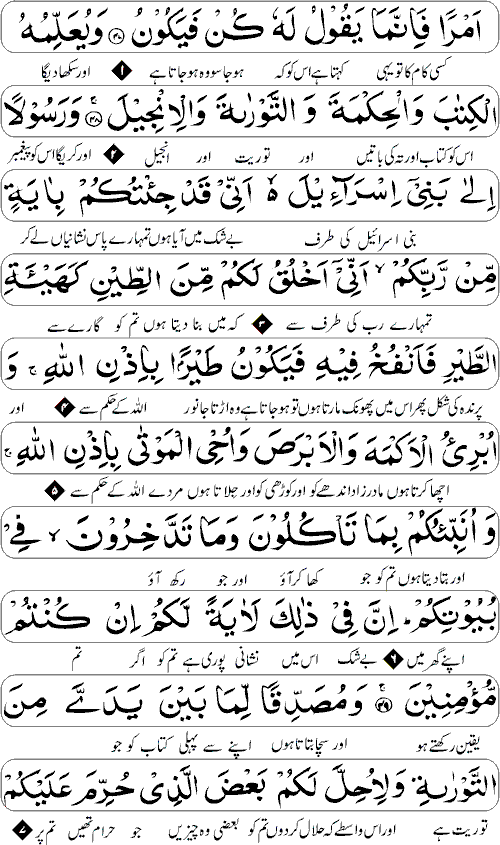 اَمْرًا فَاِنَّمَا يَقُوْلُ لَهٗ كُنْ فَيَكُوْنُ ﴿۴۷﴾ وَيُعَلِّمُهُ
کسی کام کا تو یہی کہتا ہے اس کو کہ ہو جا سو وہ ہو جاتا ہے ۱ اور سکھا دیگا
الْكِتٰبَ وَالْحِكْمَةَ وَ التَّوْرٰىةَ وَالْاِنْجِيْلَ ﴿۴۸﴾ وَرَسُوْلًا
اس کو کتاب اور تہ کی باتیں اور توریت اور انجیل ۲ اور کریگا اس کو پیغمبر
اِلٰى بَنِيْۤ اِسْرَآءِيْلَ ۙ۬ اَنِّيْ قَدْ جِئْتُكُمْ بِاٰيَةٍ
بنی اسرائیل کی طرف بے شک میں آیا ہوں تمہارے پاس نشانیاں لے کر
مِّنْ رَّبِّكُمْ ۙ اَنِّيْۤ اَخْلُقُ لَكُمْ مِّنَ الطِّيْنِ كَهَيْئَةِ
تمہارے رب کی طرف سے ۳ کہ میں بنا دیتا ہوں تم کو گارے سے
الطَّيْرِ فَاَنْفُخُ فِيْهِ فَيَكُوْنُ طَيْرًۢا بِاِذْنِ اللّٰهِ ۚ وَ
پرندہ کی شکل پھر اس میں پھونک مارتا ہوں تو ہو جاتا ہے وہ اڑتا جانور اللہ کے حکم سے ۴ اور
اُبْرِئُ الْاَكْمَهَ وَالْاَبْرَصَ وَاُحْيِ الْمَوْتٰى بِاِذْنِ اللّٰهِ ۚ
اچھا کرتا ہوں مادرزاد اندھے کو اور کوڑھی کو اور جلاتا ہوں مردے اللہ کے حکم سے ۵
وَ اُنَبِّئُكُمْ بِمَا تَاْكُلُوْنَ وَمَا تَدَّخِرُوْنَ ۙ فِيْ
اور بتا دیتا ہوں تم کو جو کھا کر آؤ اور جو رکھ آؤ
بُيُوْتِكُمْ ؕ اِنَّ فِيْ ذٰلِكَ لَاٰيَةً لَّكُمْ اِنْ كُنْتُمْ
اپنے گھر میں ۶ بے شک اس میں نشانی پوری ہے تم کو اگر تم
مُّؤْمِنِيْنَ ﴿۴۹﴾ وَمُصَدِّقًا لِّمَا بَيْنَ يَدَيَّ مِنَ
یقین رکھتے ہو اور سچا بتاتا ہوں اپنے سے پہلی کتاب کو جو
التَّوْرٰىةِ وَلِاُحِلَّ لَكُمْ بَعْضَ الَّذِيْ حُرِّمَ عَلَيْكُمْ
توریت ہے اور اس واسطے کہ حلال کر دوں تم کو بعضی وہ چیزیں جو حرام تھیں تم پر ۷